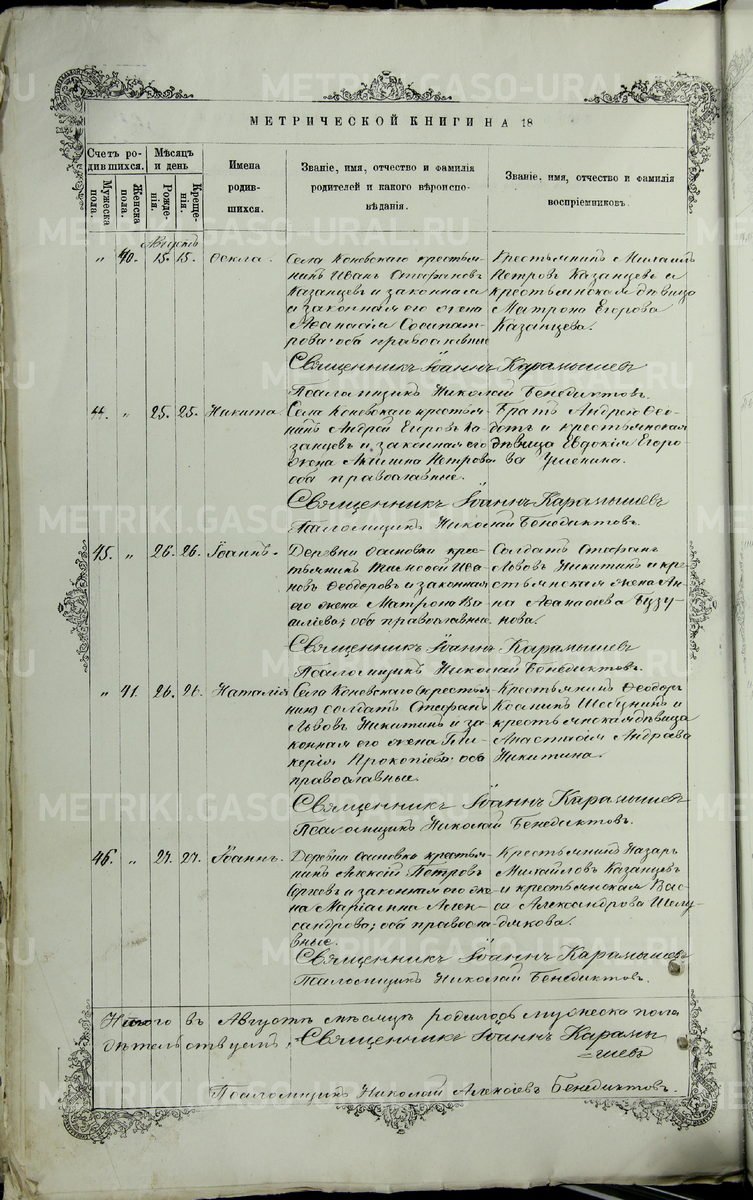 МЕТРИЧЕСКОЙ КНИГИ НА 18
Счетъ ро-
дившихся.
Мѣсяцъ
и день
Имена
родив-
шихся.
Званіе, имя, отчество и фамилія
родителей и какого вѣроиспо-
вѣданія.
Званіе, имя, отчество и фамилія
воспріемниковъ.
Мужеска
пола.
Женска
пола.
Рожде-
нія.
Креще-
нія.
Августъ
" 40. 15. 15. Ѳекла.
Села Коневскаго крестья-
нинъ Иванъ Стефановъ
Казанцевъ и законная
и законная его жена
Аѳанасія Сосипат-
рова; оба православные
Крестьянинъ Михаилъ
Петровъ Казанцевъ и
крестьянская дѣвица
Матрона Егорова
Казанцева.
Священникъ Іоаннъ Карамышевъ
Псаломщикъ Николай Бенедиктовъ.
44. " 25. 25. Никита.
Села Коневскаго крестья-
нинъ Андрей Егоровъ Ка-
занцевъ и законная его
жена Акилина Петрова
оба православные.
Братъ Андрею Ѳео-
и крестьянская
дѣвица Евдокія Егоро-
ва
Священникъ Іоаннъ Карамышевъ
Псаломщикъ Николай Бенедиктовъ.
45. " 26. 26. Іоаннъ.
Деревни Осиновки кре-
стьянинъ Тимоѳей Ива-
новъ Ѳеодоровъ и законная
его жена Матрона Ва-
сильева; оба православные
Солдатъ Стефанъ
Львовъ Никитинъ и кре-
стьянская жена Ан-
на Аѳанасьева Бузу-
нова.
Священникъ Іоаннъ Карамышевъ
Псаломщикъ Николай Бенедиктовъ.
" 41. 26. 26. Наталія
Села Коневскаго (крестья-
нинъ) солдатъ Стефанъ
Львовъ Никитинъ и за-
конная его жена Гли-
керія Прокопіева; оба
православные.
Крестьянинъ Ѳеодоръ
и
крестьянская дѣвица
Анастасія Андреева
Никитина.
Священникъ Іоаннъ Карамышевъ
Псаломщикъ Николай Бенедиктовъ.
46. " 27. 27. Іоаннъ.
Деревни Осиновки крестья-
нинъ Алексій Петровъ
и законная его же-
на Маріанна Алек-
сандрова; оба правосла-
вные.
Крестьянинъ Назаръ
Михайловъ Казанцевъ
и крестьянская Вас-
са Александрова

Священникъ Іоаннъ Карамышевъ
Псаломщикъ Николай Бенедиктовъ.
Итого въ Августѣ мѣсяцѣ родилось мужеска пола
Священникъ Іоаннъ Карамы-
шевъ
Псаломщикъ Николай Алексіевъ Бенедиктовъ.
METRIKI.GASO-URAL.RU